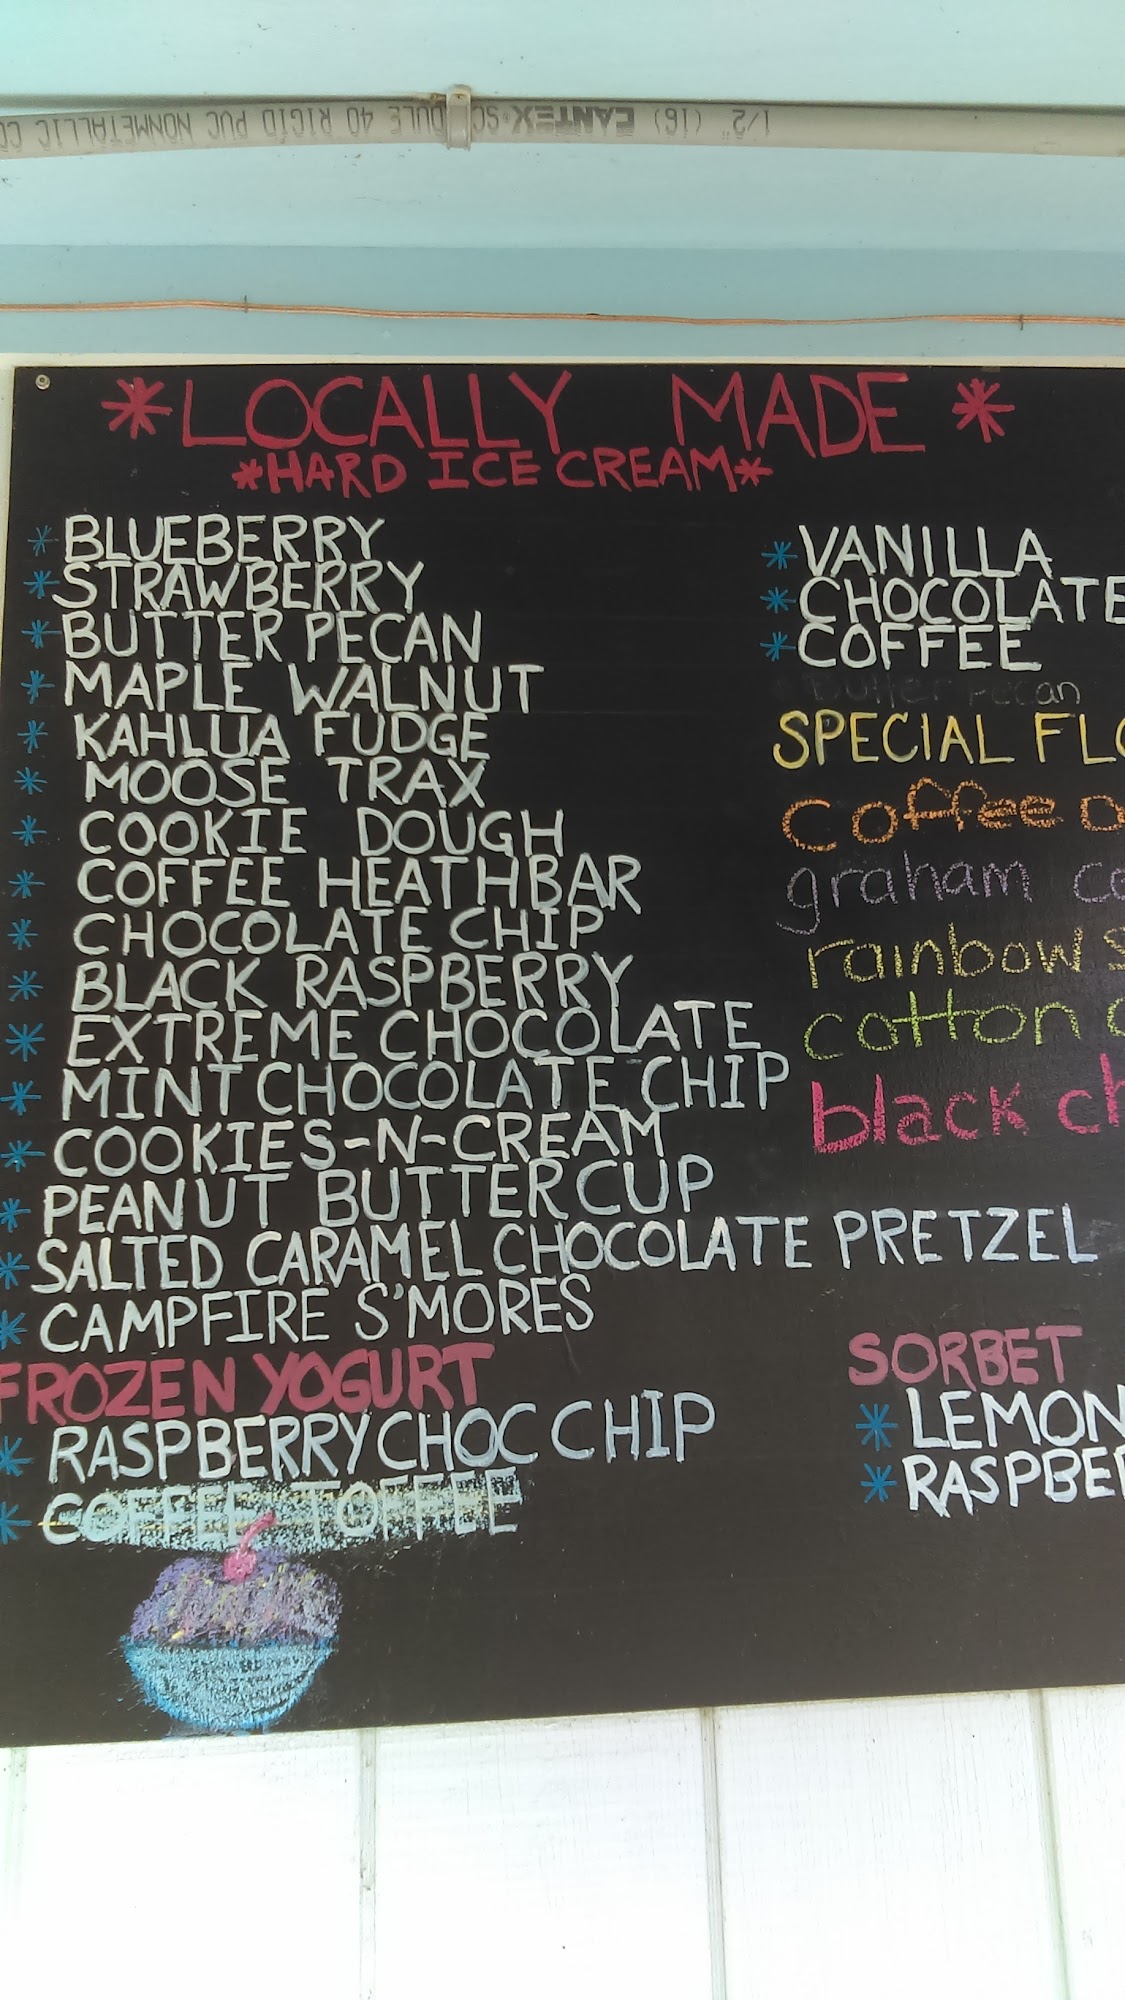 1/2" (16) CANTEX SCHEDULE 40 RIGID PVC NONMETALLIC CO
*LOCALLY MADE*
*HARD ICE CREAM*
* BLUEBERRY
* STRAWBERRY
* BUTTER PECAN
* MAPLE WALNUT
* KAHLUA FUDGE
* MOOSE TRAX
* COOKIE DOUGH
* COFFEE HEATHBAR
* CHOCOLATE CHIP
* BLACK RASPBERRY
* EXTREME CHOCOLATE
* MINT CHOCOLATE CHIP
* COOKIES-N-CREAM
* PEANUT BUTTER CUP
* SALTED CARAMEL CHOCOLATE PRETZEL
* CAMPFIRE S'MORES
* VANILLA
* CHOCOLATE
* COFFEE
Butter Pecan
SPECIAL FLO
coffee o
graham ce
rainbow s
cotton c
black ch
FROZEN YOGURT
* RASPBERRY CHOC CHIP
* COFFEE TOFFEE
SORBET
* LEMON
* RASPBER